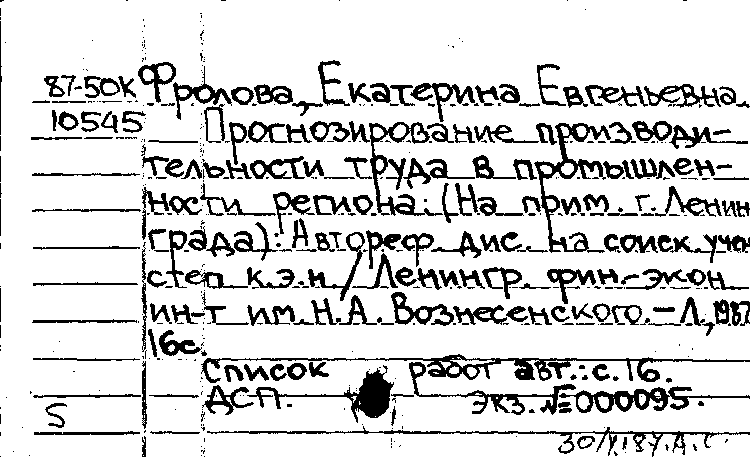 87-50К Фролова, Екатерина Евгеньевна.
10545 Прогнозирование производи-
тельности труда в промышлен-
ности региона: (На прим. г. Ленин
града): Автореф. дис. на соиск. учен
степ к.э.н / Ленингр. фин.-экон
ин-т им. Н.А. Вознесенского. - Л., 1987
16с.
Список работ авт.: с. 16.
ДСП. Экз. № 000095.
S